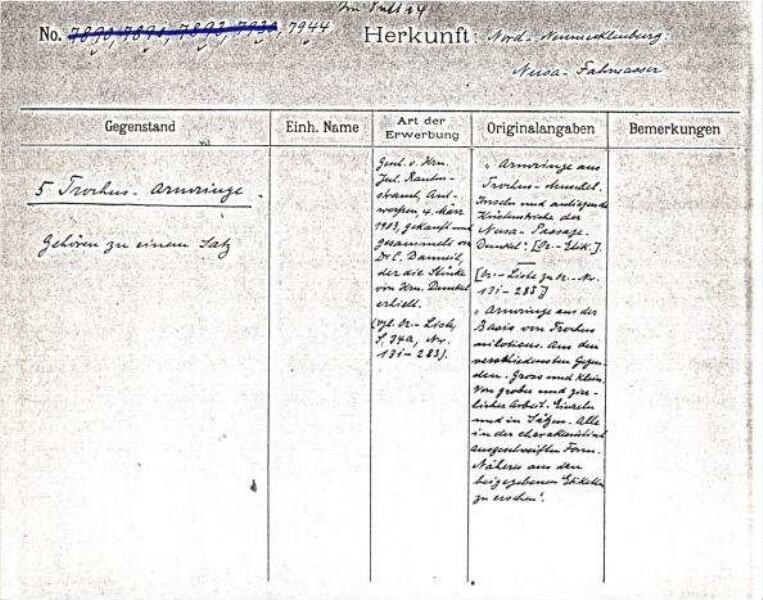 Im Pult 24
No. 7890, 7891, 7893, 7930, 7944 Herkunft: Nord-Neumecklenburg:
Nusa-Fahrwasser
Gegenstand
Einh. Name
Art der
Erwerbung
Originalangaben
Bemerkungen
5 Trochus-Armringe.
Gehören zu einem Satz
Gesch. v. Hrn.
Jul. Rauten-
strauch, Ant-
werpen, 4. März
1903, gekauft und
gesammelt von
Dr. C. Danneil,
der die Stücke
von Hrn. Dunkel
erhielt.
(vgl. Or.-Liste,
S. 34a, Nr.
13i-288).
"Armringe aus
Trochus-Muschel.
Inseln und anliegende
Küstenstriche der
Nusa-Passage.
Dunkel". [Or.-Etik.].
[Or.-Liste zu Or.-Nr.
13i-288]
"Armringe aus der
Basis von Trochus
niloticus. Aus den
verschiedensten Gegen-
den. Gross und klein,
von grober und zier-
licher Arbeit. Einzeln
und in Sätzen. Alle
in der charakteristisch
ausgeschweiften Form.
Näheres aus den
beigegebenen Etiketten
zu ersehen".